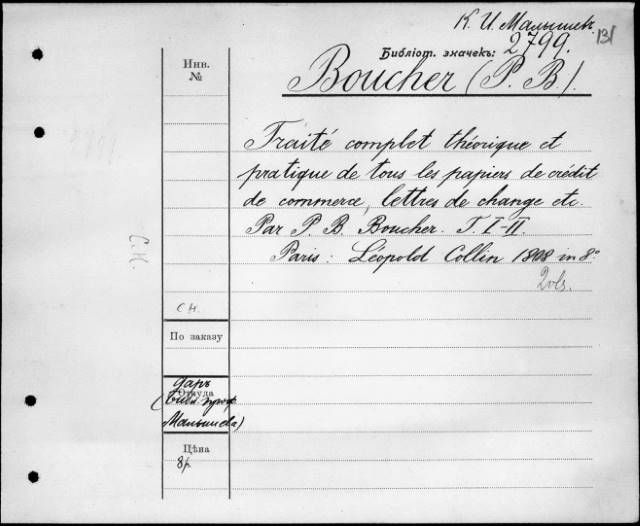 К. И. Малышевъ
131
Библіот. значекъ: 2799.
Инв.
№
Boucher (P. B.).
Traité complet théorique et
pratique de tous les papiers de crédit
de commerce, lettres de change etc.
Par P. B. Boucher. T. I-II.
Paris: Léopold Collin 1808 in 8°
2 vols.
С.Н.
С Н.
По заказу
Даръ
Откуда
(Библ. проф.
Малышева)
Цѣна
8р.